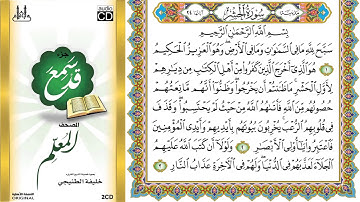 audio
CD
جزء
قد سمع
المصحف
المعلم
خليفة الطنيجي
ORIGINAL
2CD
سورة الحشر
بسم الله الرحمن الرحيم
سبح لله مافي السموات ومافي الأرض وهو العزيز الحكيم
١ هو الذي أخرج الذين كفروا من أهل الكتاب من ديرهم
لأول الحشر ما ظننتم أن يخرجوا وظنوا أنهم مانعتهم
حصونهم من الله فأتىهم الله من حيث لم يحتسبوا وقذف
في قلوبهم الرعب يخربون بيوتهم بأيديهم وأيدي المؤمنين
فاعتبروا يأولي الأبصر ٢ ولولا أن كتب الله عليهم
الجلاء لعذبهم في الدنيا ولهم في الآخرة عذاب النار ٣